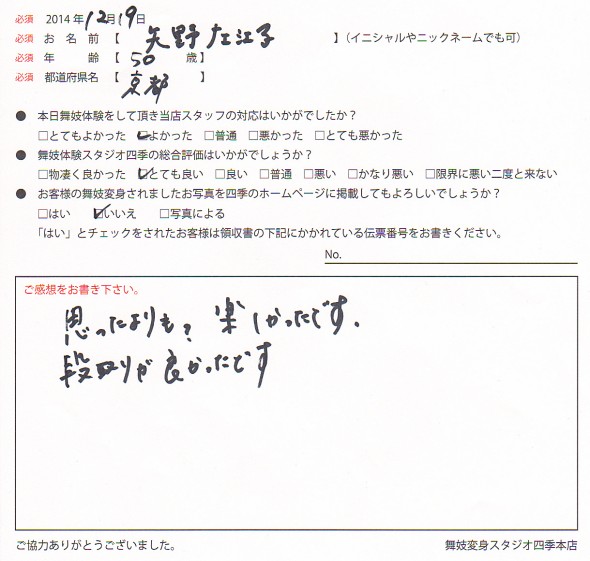 必須 2014年12月19日
必須 お名前【 矢野左江子 】(イニシャルやニックネームでも可)
必須 年齢【 50 歳】
必須 都道府県名【 京都 】
● 本日舞妓体験をして頂き当店スタッフの対応はいかがでしたか？
□とてもよかった ☑よかった □普通 □悪かった □とても悪かった
● 舞妓体験スタジオ四季の総合評価はいかがでしょうか？
□物凄く良かった ☑とても良い □良い □普通 □悪い □かなり悪い □限界に悪い二度と来ない
● お客様の舞妓変身されましたお写真を四季のホームページに掲載してもよろしいでしょうか？
□はい ☑いいえ □写真による
「はい」とチェックをされたお客様は領収書の下記にかかれている伝票番号をお書きください。
No.
ご感想をお書き下さい。
思ったよりも？楽しかったです.
段取りが良かったです
ご協力ありがとうございました。 舞妓変身スタジオ四季本店